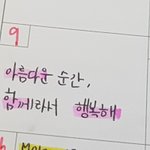 9
아름다운 순간,
함께라서 행복해